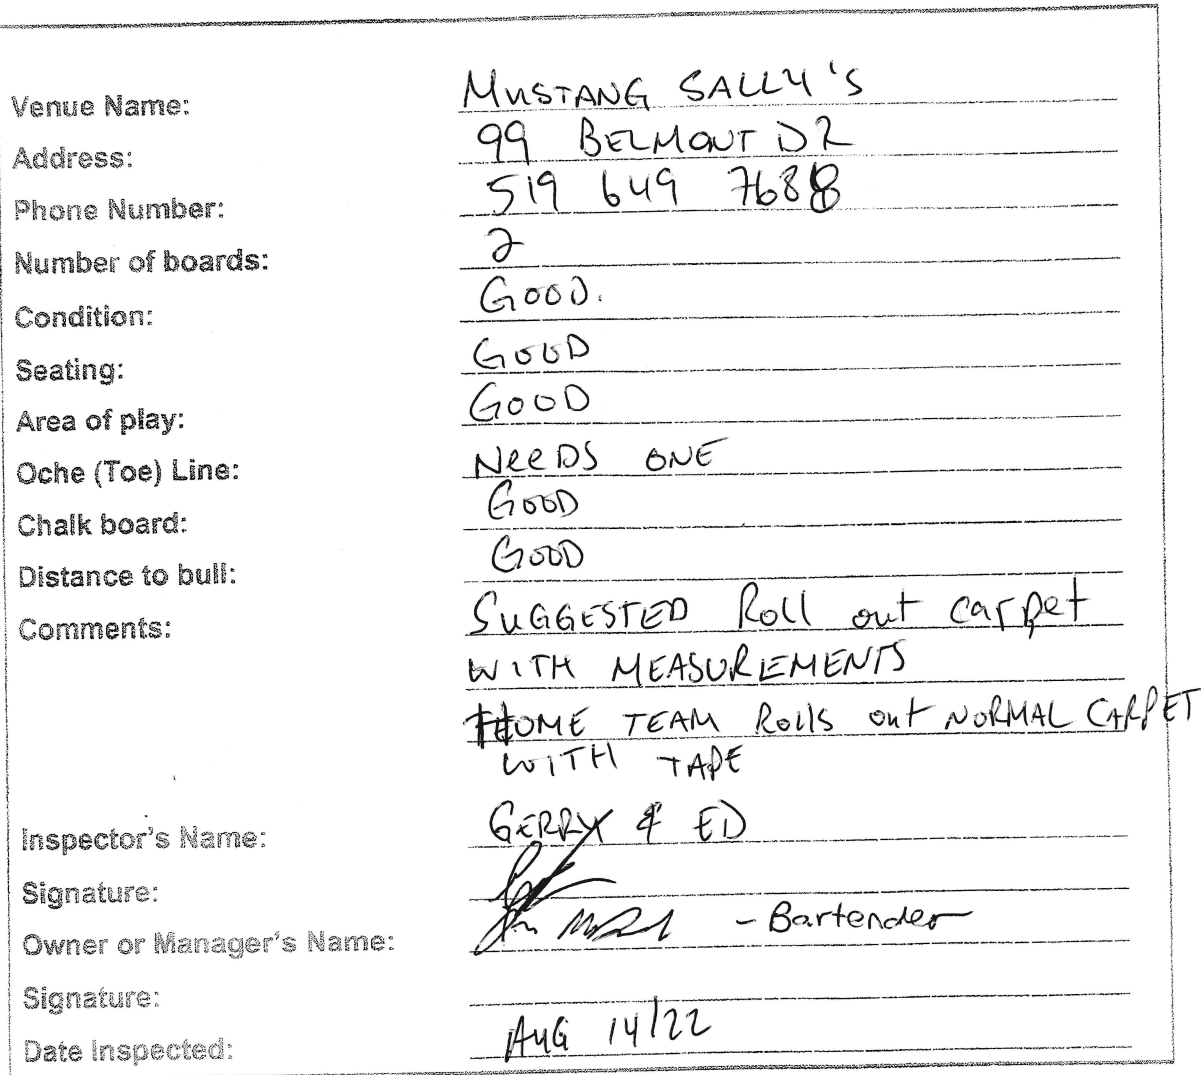 Venue Name: MUSTANG SALLY'S
Address: 99 BELMONT DR
Phone Number: 519 649 7688
Number of boards: 2
Condition: GOOD.
Seating: GOOD
Area of play: GOOD
Oche (Toe) Line: NeeDS ONE
Chalk board: GOOD
Distance to bull: GOOD
Comments: SUGGESTED Roll out carpet
WITH MEASUREMENTS
HOME TEAM Rolls out NORMAL CARPET
WITH TAPE
Inspector's Name: GERRY & ED
Signature:
Owner or Manager's Name: - Bartender
Signature:
Date Inspected: AUG 14/22